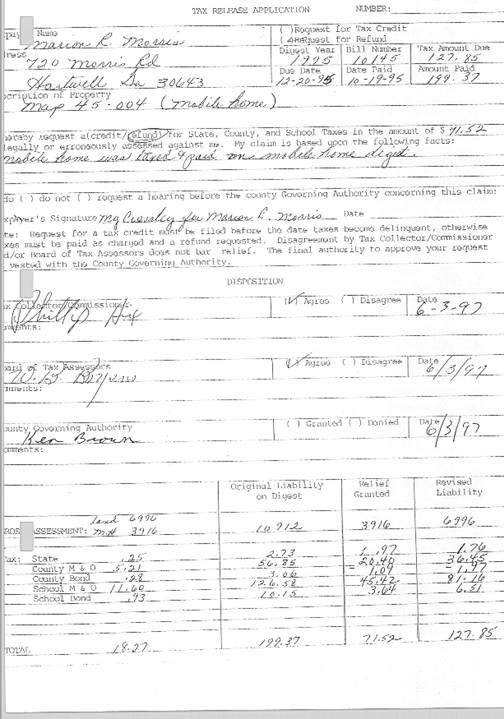 TAX RELEASE APPLICATION NUMBER:
Name
Marion R. Morris
720 Morris Rd
Hartwell Ga 30643
( )Request for Tax Credit
Request for Refund
Digest Year Bill Number Tax Amount Due
1995 10145 127.85
Due Date Date Paid Amount Paid
12-20-95 10-19-95 199.37
scription of Property
Map 45-004 (mobile home)
hereby request a(credit/refund) for State, County, and School Taxes in the amount of $ 71.52
legally or erroneously assessed against me. My claim is based upon the following facts:
mobile home was taxed & paid on mobile home digest.
do ( ) do not ( ) request a hearing before the county Governing Authority concerning this claim:
xpayer's Signature for Marion R. Morris Date
te: Request for a tax credit must be filed before the date taxes become delinquent, otherwise
xes must be paid as charged and a refund requested. Disagreement by Tax Collector/Commissioner
d/or Board of Tax Assessors does not bar relief. The final authority to approve your request
vested with the County Governing Authority.
DISPOSITION
ax Collector/Commissioner (✓) Agree ( ) Disagree Date
6-3-97
mments:
oard of Tax Assessors (✓) Agree ( ) Disagree Date
6/3/97
mments:
ounty Governing Authority ( ) Granted ( ) Denied Date
Ken Brown 6/3/97
omments:
Original Liability on Digest Relief Granted Revised Liability
land 6996
ROSS ASSESSMENT: MH 3916 10,912 3916 6996
Tax: State .25 2.73 .97 1.76
County M & O 5.21 56.85 20.40 36.45
County Bond .28 3.06 1.09 1.97
School M & O 11.60 126.58 45.42 81.16
School Bond .93 10.15 3.64 6.51
TOTAL 18.27 199.37 71.52 127.85